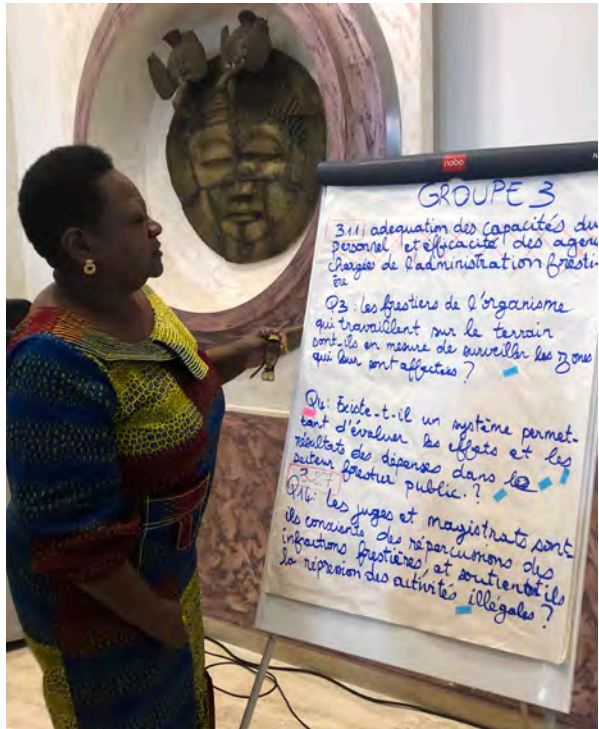 nobo
N
GROUPE 3
3.1.1 adequation des capacités du
personnel et efficacité des agen
chargées de l'administration foresti-
ère
Q3: les forestiers de l'organisme
qui travaillent sur le terrain
sont-ils en mesure de surveiller les zones
qui leur sont affectées ?
Q4: Existe-t-il un système permet-
tant d'évaluer les effets et les
résultats des dépenses dans le
secteur forestier public. ?
Q14: Les juges et magistrats sont
ils conscients des répercussions des
infractions forestières et soutientils
la répression des activités illégales ?